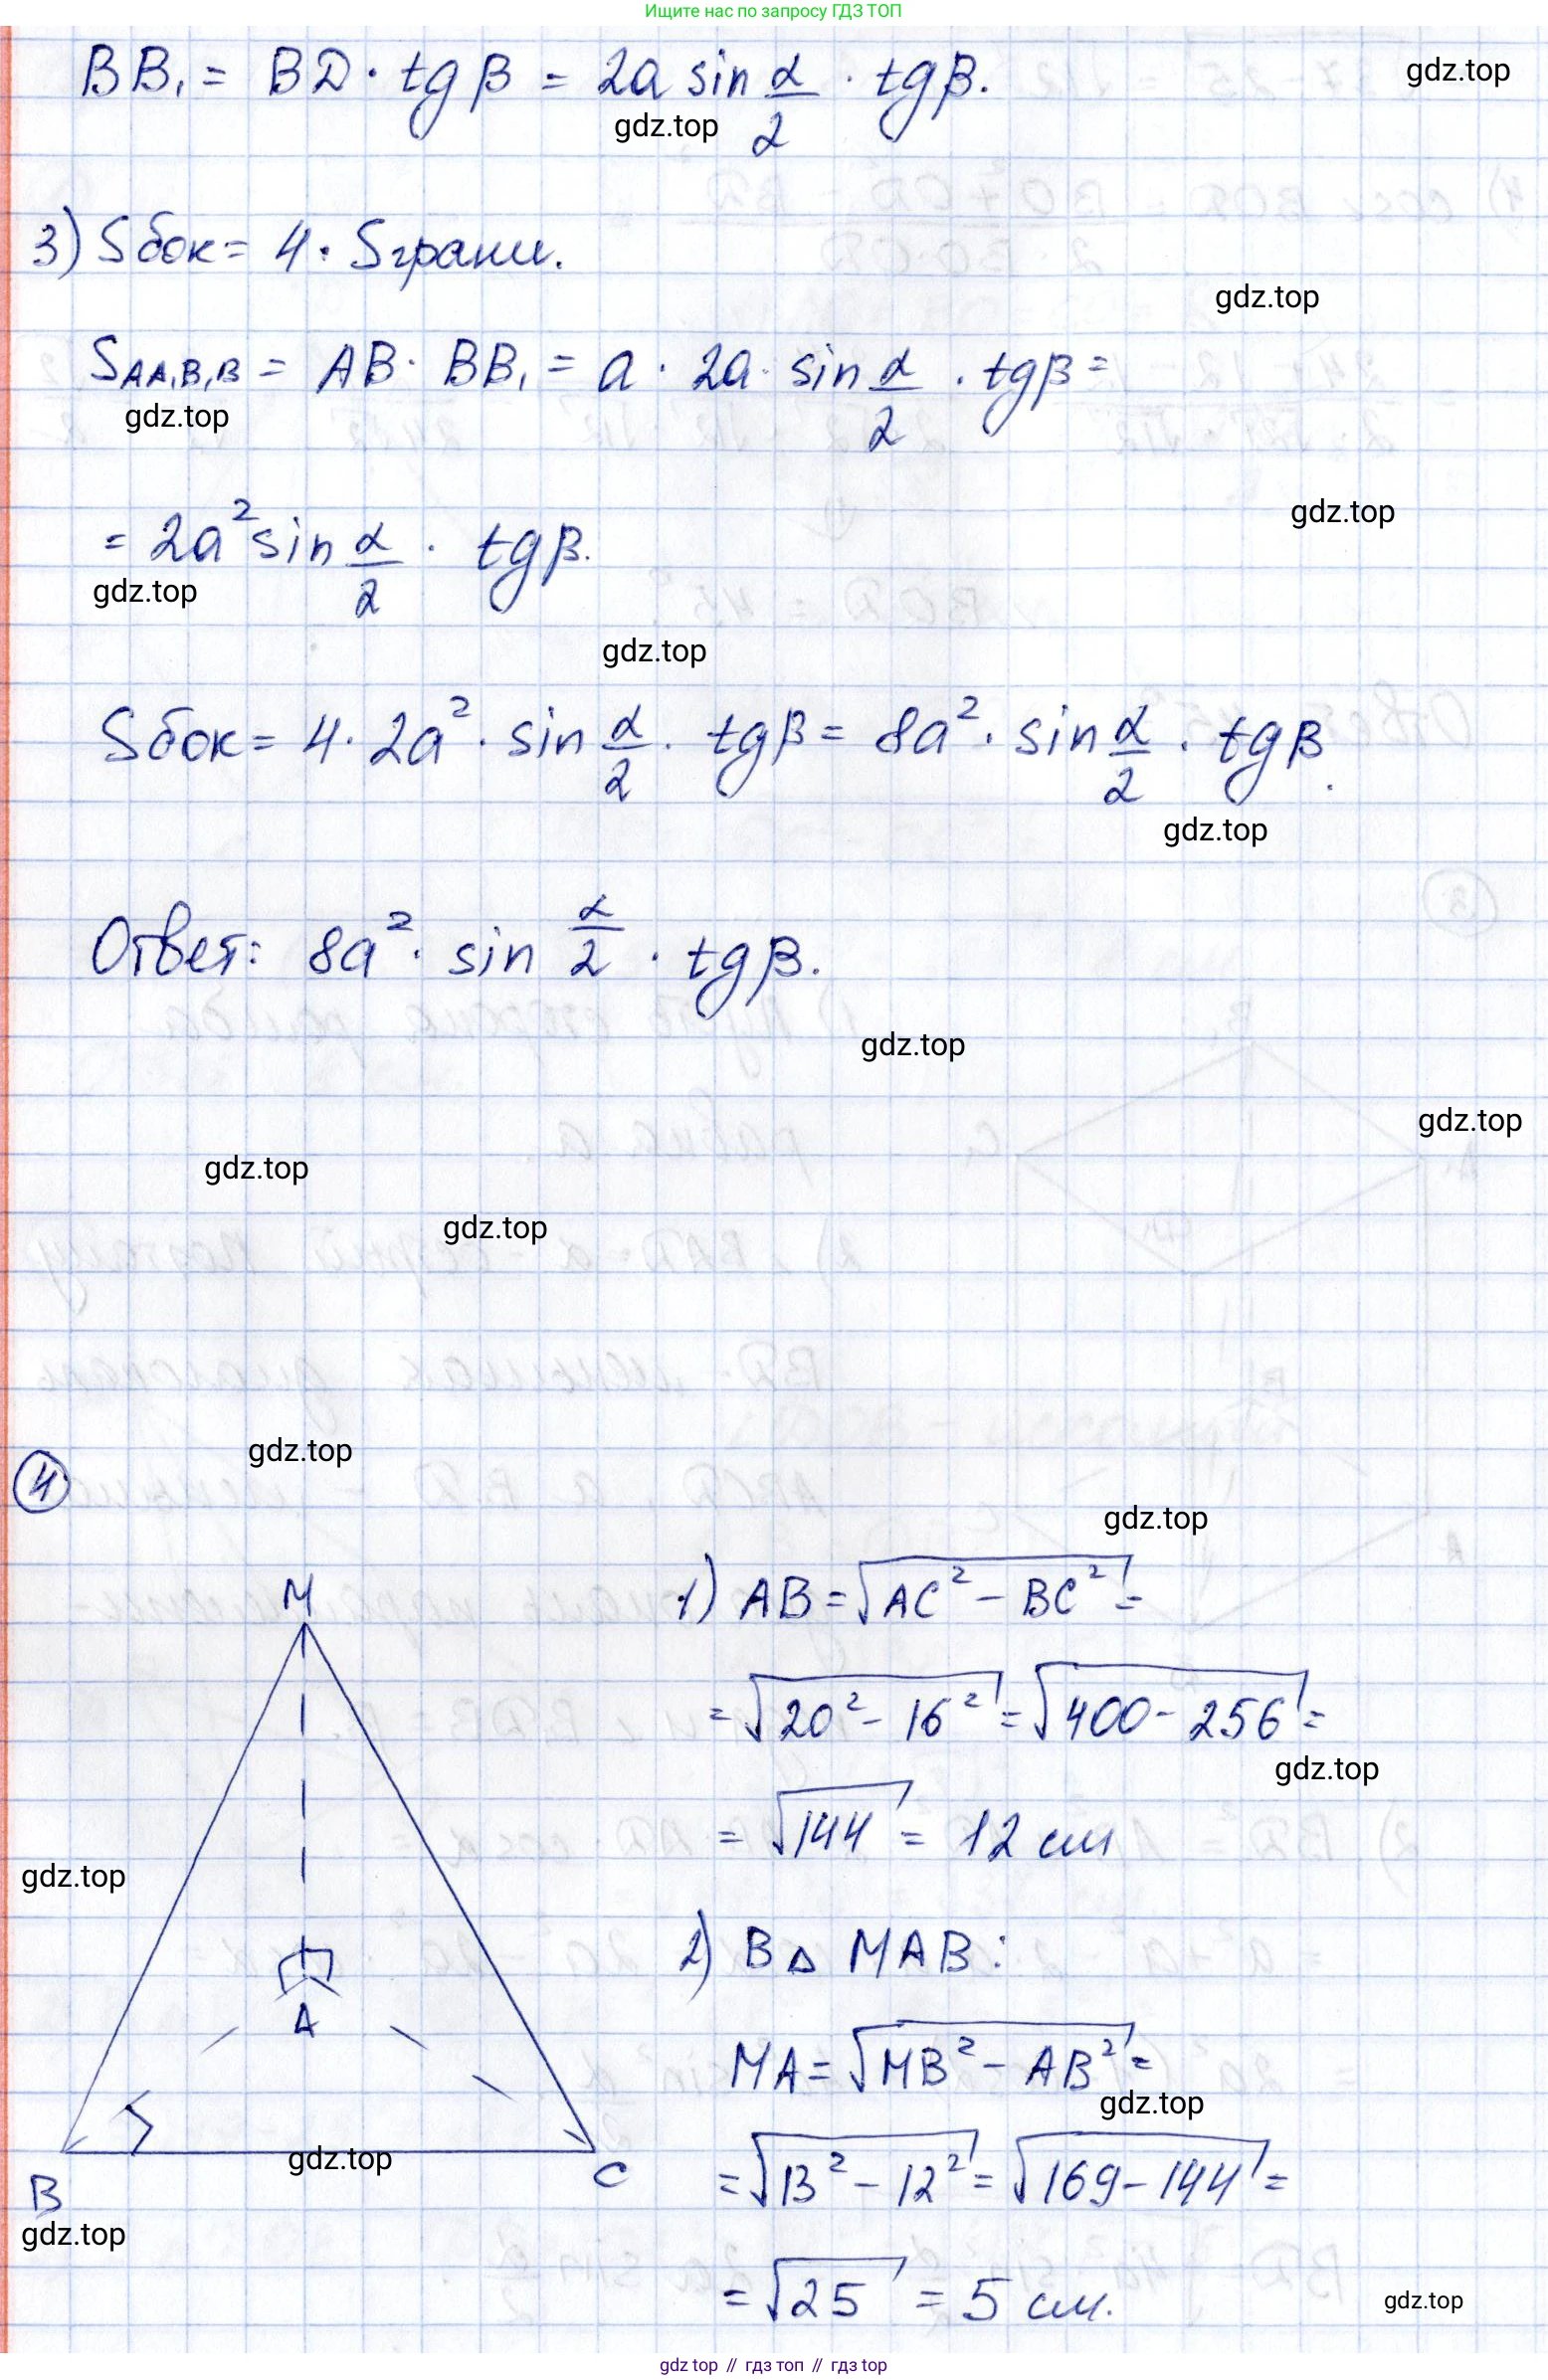 Ищите нас по запросу ГДЗ ТОП
BB₁ = BD · tgβ = 2a sin α/2 · tgβ.
gdz.top
gdz.top
3) Sбок = 4 · Sграни.
gdz.top
SAA₁B₁B = AB · BB₁ = a · 2a · sin α/2 · tgβ =
gdz.top
gdz.top
= 2a² sin α/2 · tgβ.
gdz.top
gdz.top
Sбок = 4 · 2a² · sin α/2 · tgβ = 8a² · sin α/2 · tgβ.
gdz.top
Ответ: 8a² · sin α/2 · tgβ.
gdz.top
gdz.top
gdz.top
gdz.top
gdz.top
4
gdz.top
M
1) AB = √AC² − BC² =
= √20² − 16² = √400 − 256 =
gdz.top
= √144 = 12 см
gdz.top
2) В △ MAB:
A
MA = √MB² − AB² =
gdz.top
gdz.top
= √13² − 12² = √169 − 144 =
B
C
gdz.top
= √25 = 5 см.
gdz.top
gdz top // гдз топ // гдз top